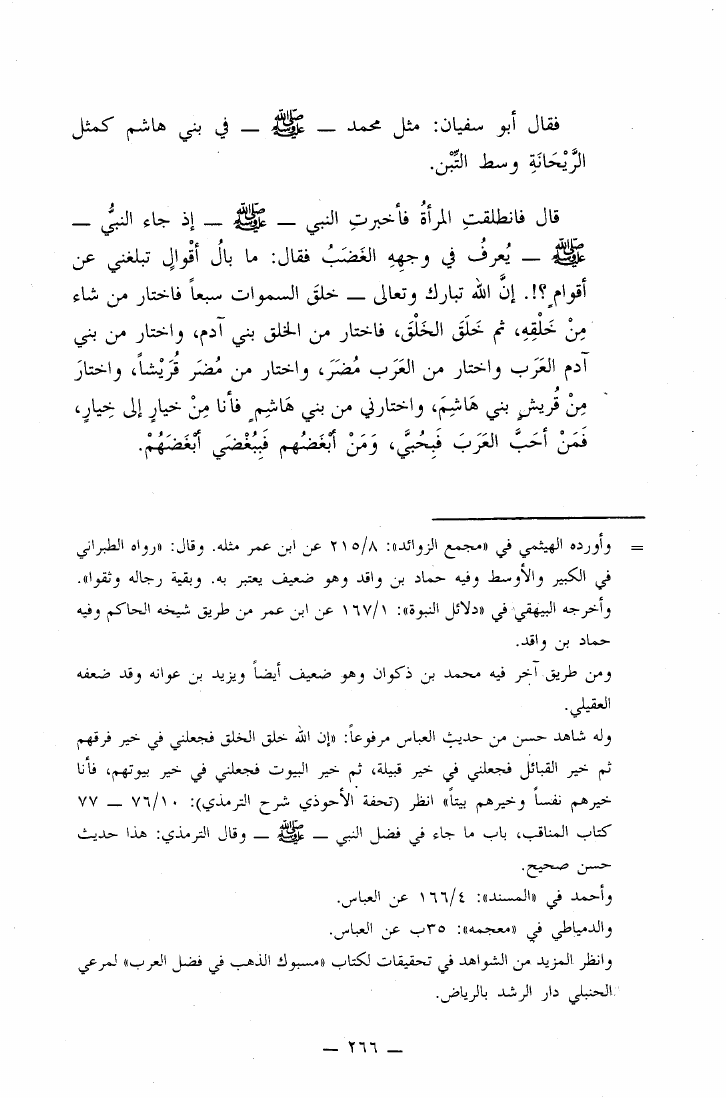 فقال أبو سفيان: مثل محمد — ﷺ — في بني هاشم كمثل
الرَّيْحَانَةِ وسط التِّبْن.
قال فانطلقتِ المرأةُ فأخبرتِ النبي — ﷺ — إذ جاء النبيُّ —
ﷺ — يُعرفُ في وجهِهِ الغَضَبُ فقال: ما بالُ أقْوالٍ تبلغني عن
أقوامٍ؟!. إنَّ الله تبارك وتعالى — خلقَ السموات سبعاً فاختار من شاء
مِنْ خَلْقِهِ، ثم خَلَقَ الخَلْقَ، فاختار من الخلق بني آدم، واختار من بني
آدم العَرَب واختار من العَرَب مُضَرَ، واختار من مُضَر قُرَيْشاً، واختارَ
مِنْ قُريشٍ بني هَاشِمَ، واختارني من بني هَاشِمٍ فأنا مِنْ خيارٍ إلى خِيارٍ،
فَمَنْ أحَبَّ العَرَبَ فَبِحُبيَّ، وَمَنْ أبْغَضُهم فَبِبُغْضَي أبْغَضَهُمْ.
= وأورده الهيثمي في «مجمع الزوائد»: ٢١٥/٨ عن ابن عمر مثله. وقال: «رواه الطبراني
في الكبير والأوسط وفيه حماد بن واقد وهو ضعيف يعتبر به. وبقية رجاله وثقوا».
وأخرجه البيهقي في «دلائل النبوة»: ١٦٧/١ عن ابن عمر من طريق شيخه الحاكم وفيه
حماد بن واقد.
ومن طريق آخر فيه محمد بن ذكوان وهو ضعيف أيضاً ويزيد بن عوانه وقد ضعفه
العقيلي.
وله شاهد حسن من حديث العباس مرفوعاً: «إن الله خلق الخلق فجعلني في خير فرقهم
ثم خير القبائل فجعلني في خير قبيلة، ثم خير البيوت فجعلني في خير بيوتهم، فأنا
خيرهم نفساً وخيرهم بيتاً» انظر (تحفة الأحوذي شرح الترمذي): ٧٦/١٠ — ٧٧
كتاب المناقب، باب ما جاء في فضل النبي — ﷺ — وقال الترمذي: هذا حديث
حسن صحيح.
وأحمد في «المسند»: ١٦٦/٤ عن العباس.
والدمياطي في «معجمه»: ٣٥ب عن العباس.
وانظر المزيد من الشواهد في تحقيقات لكتاب «مسبوك الذهب في فضل العرب» لمرعي
الحنبلي دار الرشد بالرياض.
— ٢٦٦ —